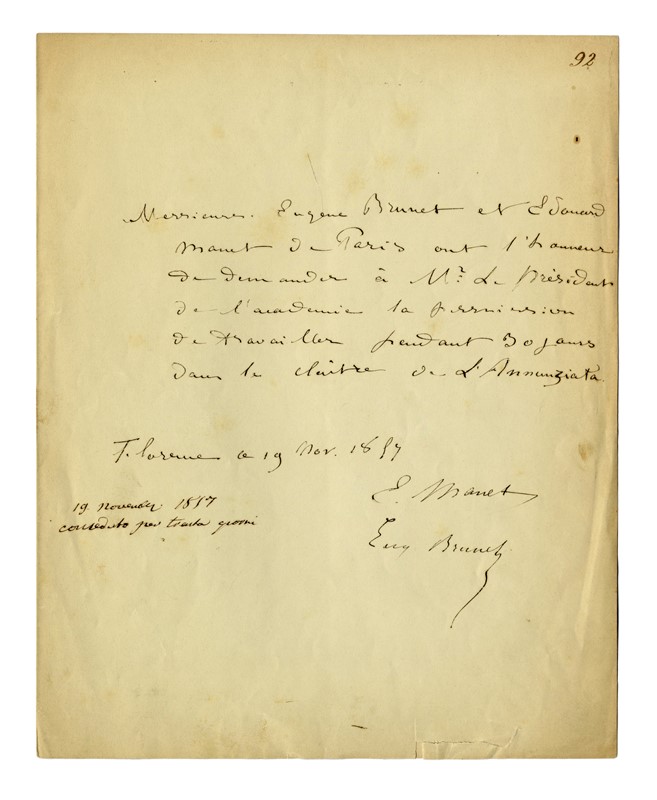 92
Messieurs. Eugène Brunet et Edouard
Manet de Paris ont l'honneur
de demander à Mr. Le Président
de l'academie la permission
de travailler pendant 30 jours
dans le cloître de L'Annunziata
Florence ce 19 Nov. 1857
E. Manet
19 novembre 1857
conceduto per trenta giorni
Eug Brunet